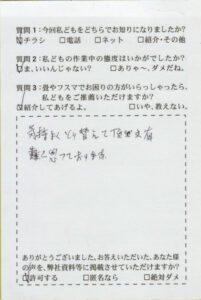 質問1：今回私どもをどちらでお知りになりましたか？
□チラシ □電話 □ネット □紹介・その他
質問2：私どもの作業中の態度はいかがでしたか？
□ま、いいんじゃない？ □ありゃ～、ダメだね。
質問3：畳やフスマでお困りの方がいらっしゃったら、
私どもをご推薦いただけますか？
□紹介してあげるよ。 □いや、教えない。
気持よくとり替えて頂き有
難く思っております
ありがとうございました。お答えいただいた、あなた様
の声を、弊社資料等に掲載させていただけますか？
□許可する □匿名なら □絶対ダメ